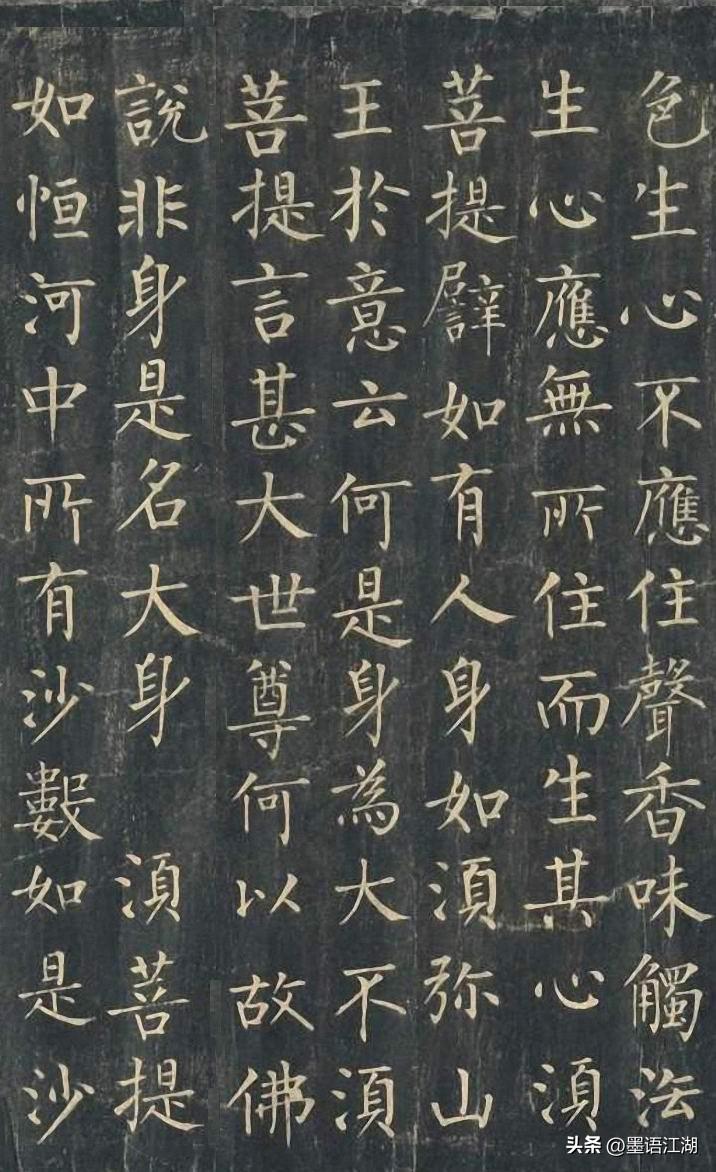 色生心不應住聲香味觸法
生心應無所住而生其心須
菩提譬如有人身如須弥山
王於意云何是身為大不須
菩提言甚大世尊何以故佛
說非身是名大身 須菩提
如恒河中所有沙數如是沙
头条 @墨语江湖